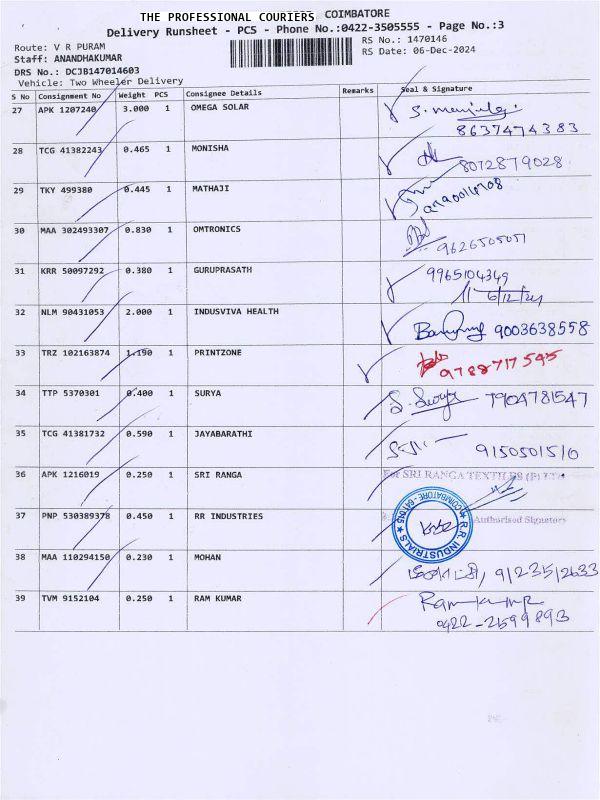 THE PROFESSIONAL COURIERS COIMBATORE
Delivery Runsheet - PCS - Phone No.:0422-3505555 - Page No.:3
Route: V R PURAM
RS No.: 1470146
Staff: ANANDHAKUMAR
RS Date: 06-Dec-2024
DRS No.: DCJB147014603
Vehicle: Two Wheeler Delivery
S No Consignment No Weight PCS Consignee Details Remarks Seal & Signature
27 APK 1207240 3.000 1 OMEGA SOLAR
8637474383
28 TCG 41382243 0.465 1 MONISHA 8072879028
29 TKY 499380 0.445 1 MATHAJI
30 MAA 302493307 0.830 1 OMTRONICS
9626505051
31 KRR 50097292 0.380 1 GURUPRASATH 9965104349
6/12/24
32 NLM 90431053 2.000 1 INDUSVIVA HEALTH
9003638558
33 TRZ 102163874 1.190 1 PRINTZONE
9788717545
34 TTP 5370301 0.400 1 SURYA S. Surya 7904781547
35 TCG 41381732 0.590 1 JAYABARATHI
9150501510
36 APK 1216019 0.250 1 SRI RANGA For SRI RANGA TEXTILES (P) LTD
37 PNP 530389378 0.450 1 RR INDUSTRIES Authorised Signatory
R.R. INDUSTRIALS ★ COIMBATORE - 641 045 ★
38 MAA 110294150 0.230 1 MOHAN
9123512633
39 TVM 9152104 0.250 1 RAM KUMAR Ramkumar
0422-2599893